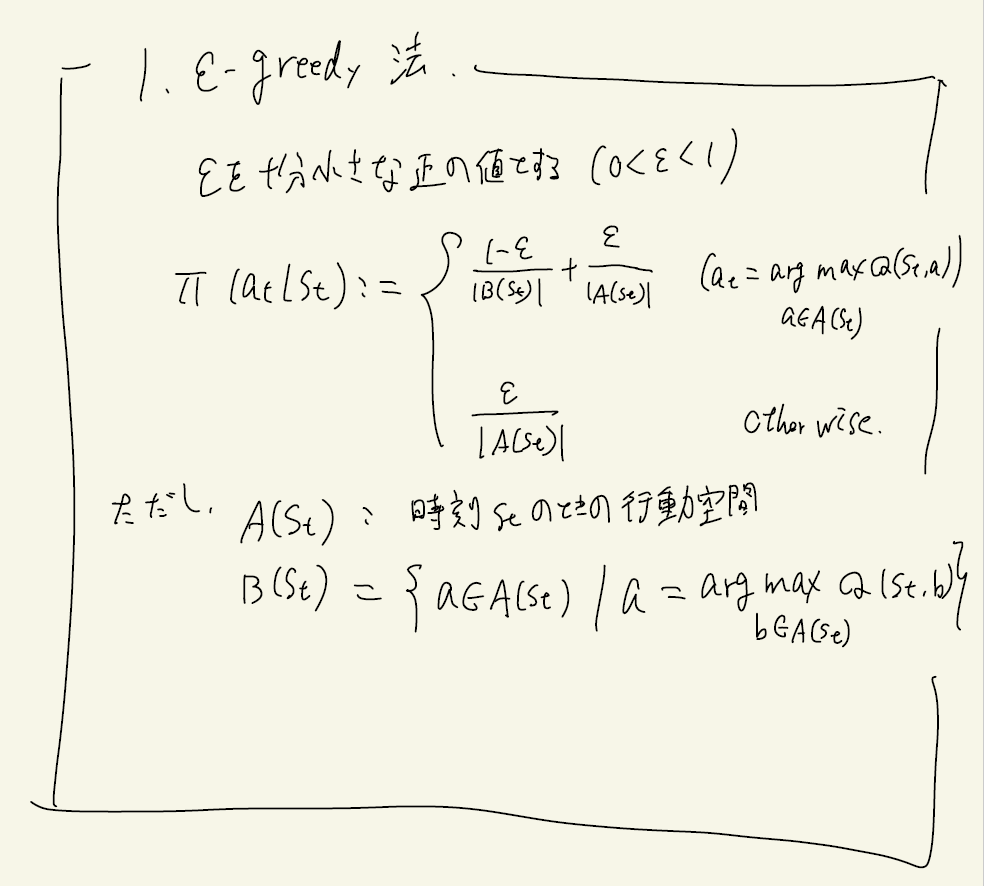 1. ε-greedy 法.
εを十分小さな正の値とする (0<ε<1)
π(at|St) := { (1-ε)/|B(St)| + ε/|A(St)| (at = arg max Q(St,a)) a∈A(St)
ε/|A(St)| otherwise.
ただし, A(St) : 時刻 St のときの行動空間
B(St) = { a∈A(St) | a = arg max Q(St,b) } b∈A(St)